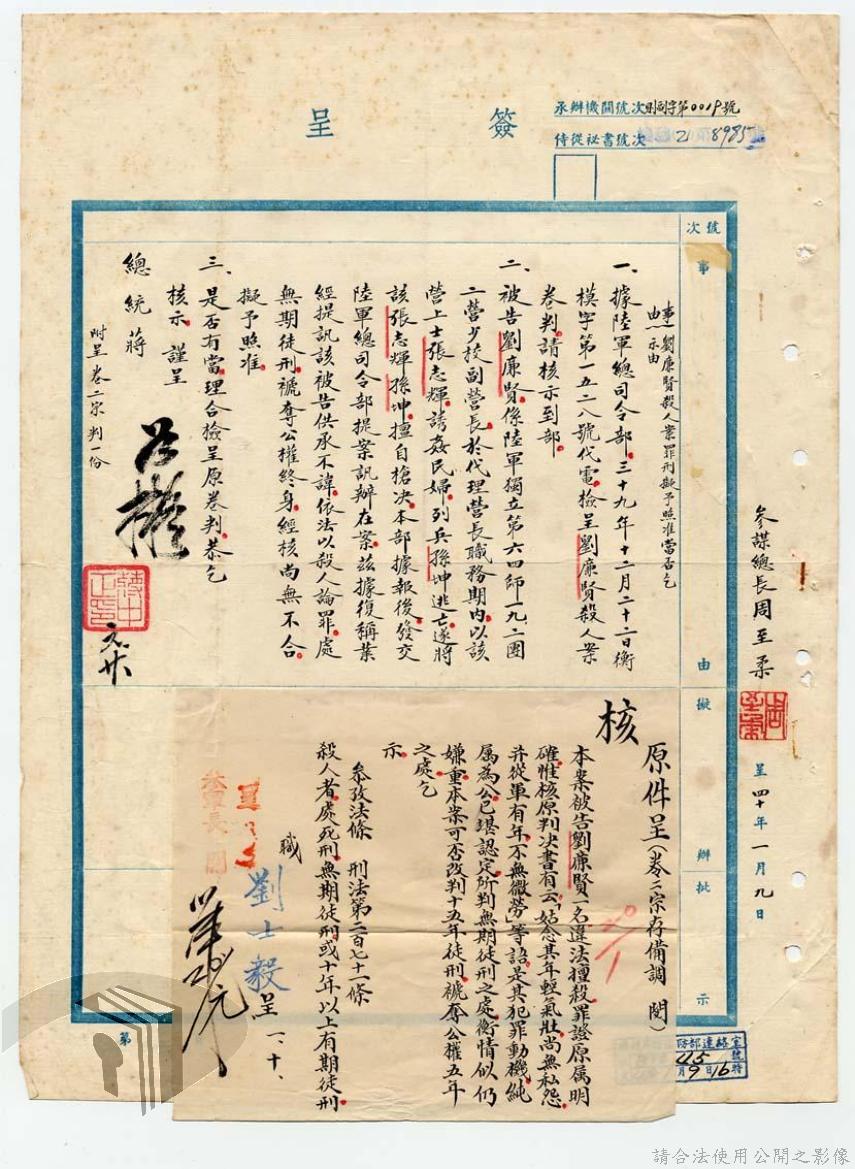 簽呈
承辦機關號次則副字第0019號
侍從祕書號次 21 8985
號次
事由擬辦批示
參謀總長周至柔 呈 四十年一月九日
事由：劉廉賢殺人案罪刑擬予照准當否乞
示由
一、據陸軍總司令部三十九年十二月二十二日衡
模字第一五二八號代電檢呈劉廉賢殺人案
卷判請核示到部
二、被告劉廉賢係陸軍獨立第六四師一九二團
二營少校副營長於代理營長職務期內以該
營上士張志輝誘姦民婦列兵孫坤逃亡遂將
該張志輝孫坤擅自槍決本部據報後發交
陸軍總司令部提案訊辦在案茲據復稱業
經提訊該被告供承不諱依法以殺人論罪處
無期徒刑褫奪公權終身經核尚無不合
擬予照准
三、是否有當理合檢呈原卷判恭乞
核示謹呈
總統蔣
附呈卷二宗判一份
原件呈（卷二宗存備調閱）
核
本案被告劉廉賢一名違法擅殺罪證原属明
確惟核原判决書有云「姑念其年輕氣壯尚無私怨
并從軍有年不無微勞」等語是其犯罪動機純
属為公已堪認定所判無期徒刑之處衡情似仍
嫌重本案可否改判十五年徒刑褫奪公權五年
之處乞
示
參攷法條 刑法第二百七十一條
殺人者處死刑無期徒刑或十年以上有期徒刑
職
劉士毅呈 一、十
第
請合法使用公開之影像